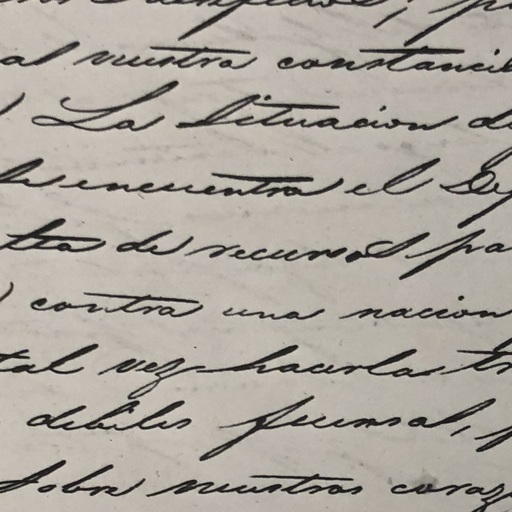 al nuestra constancia
La Situacion de
le encuentra el
lta de recursos pa
contra una nacion
tal vez hacerla tr
debiles fuersas, p
sobre nuestros coraz